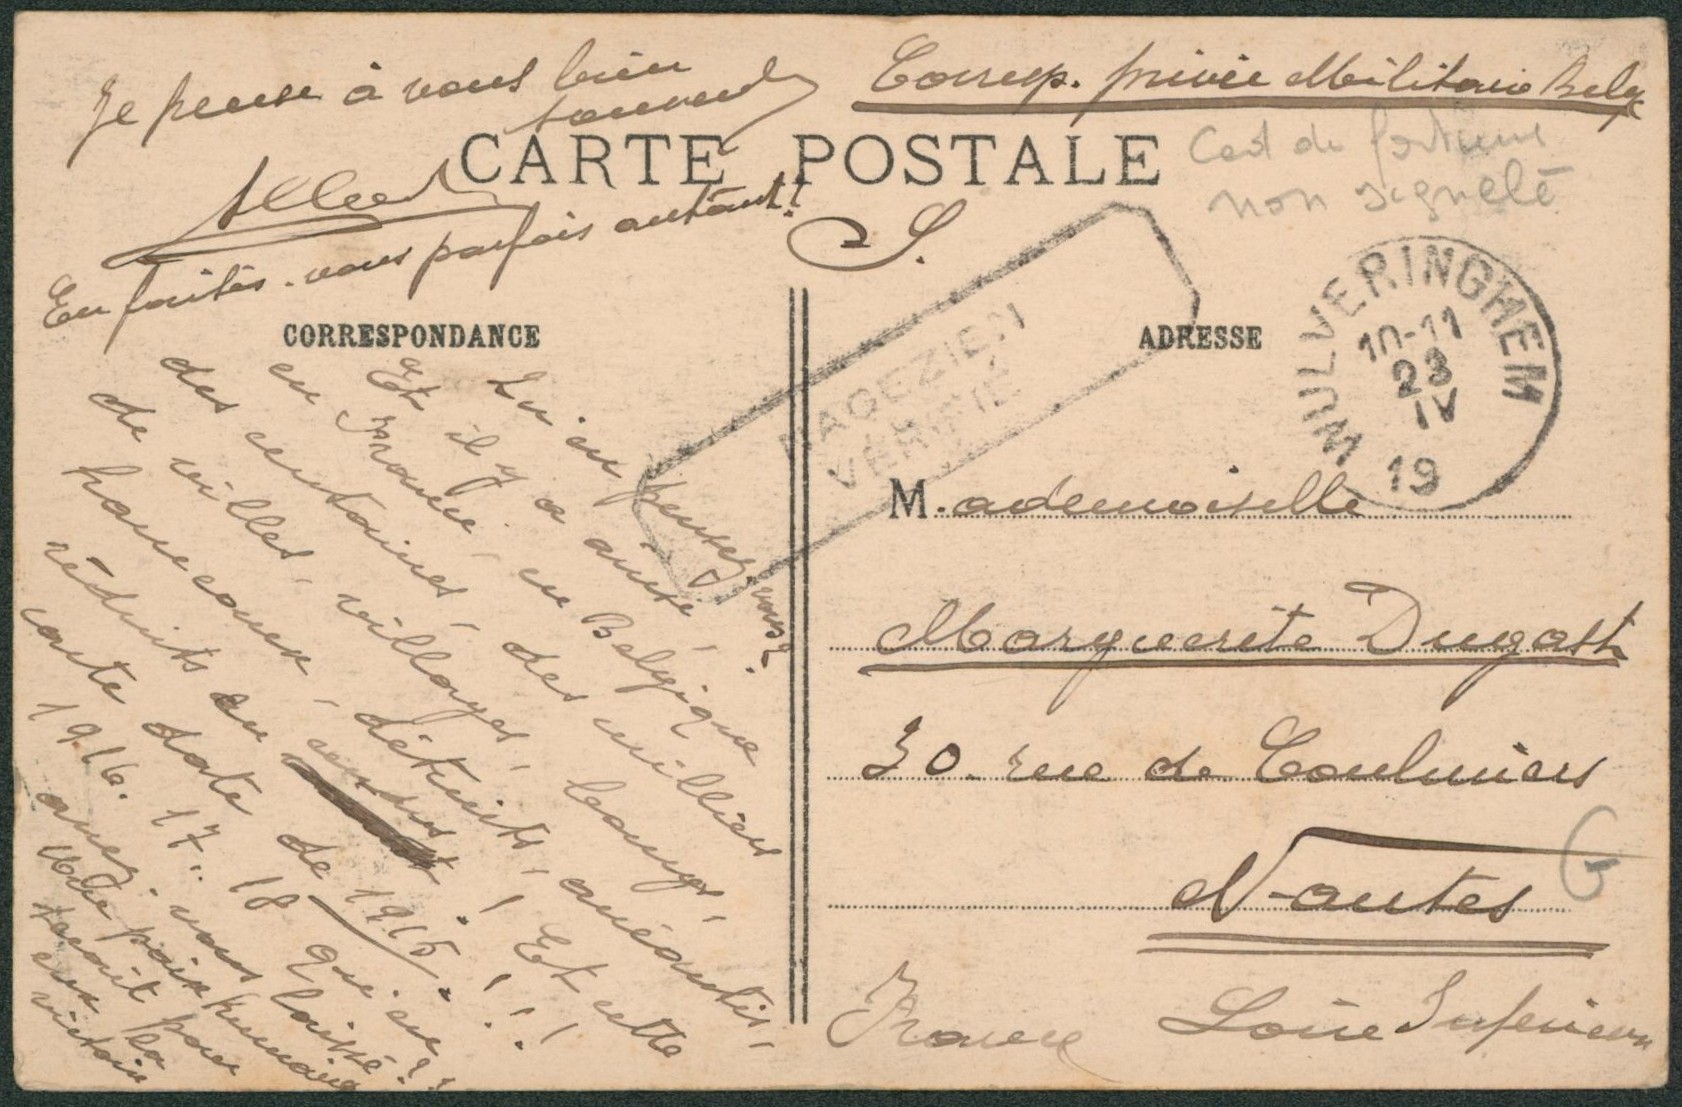 Je pense à vous bien
souvent
Albert
En faites-vous parfois autant!
Corresp. privée Militaire Belge
Cart de fortune
non signalé
CARTE POSTALE
S.
CORRESPONDANCE
ADRESSE
NAGEZIEN
VÉRIFIÉ
MULVERINGHEM
10-11
23
IV
19
Qu'en pensez-vous?
Et il y a aussi,
en France, en Belgique
des centaines, des milliers
de villes, villages, bourgs,
hameaux, détruits, anéantis,
réduits en cendres!!! Et cette
carte date de 1915.!!!
1916. 17. 18 que en
avez-vous laissé??
Notre pain
serait pour
eux la
victoire
M.ademoiselle
Marguerite Dugast
30. rue de Coulmiers
Nantes
France Loire Inférieure
G